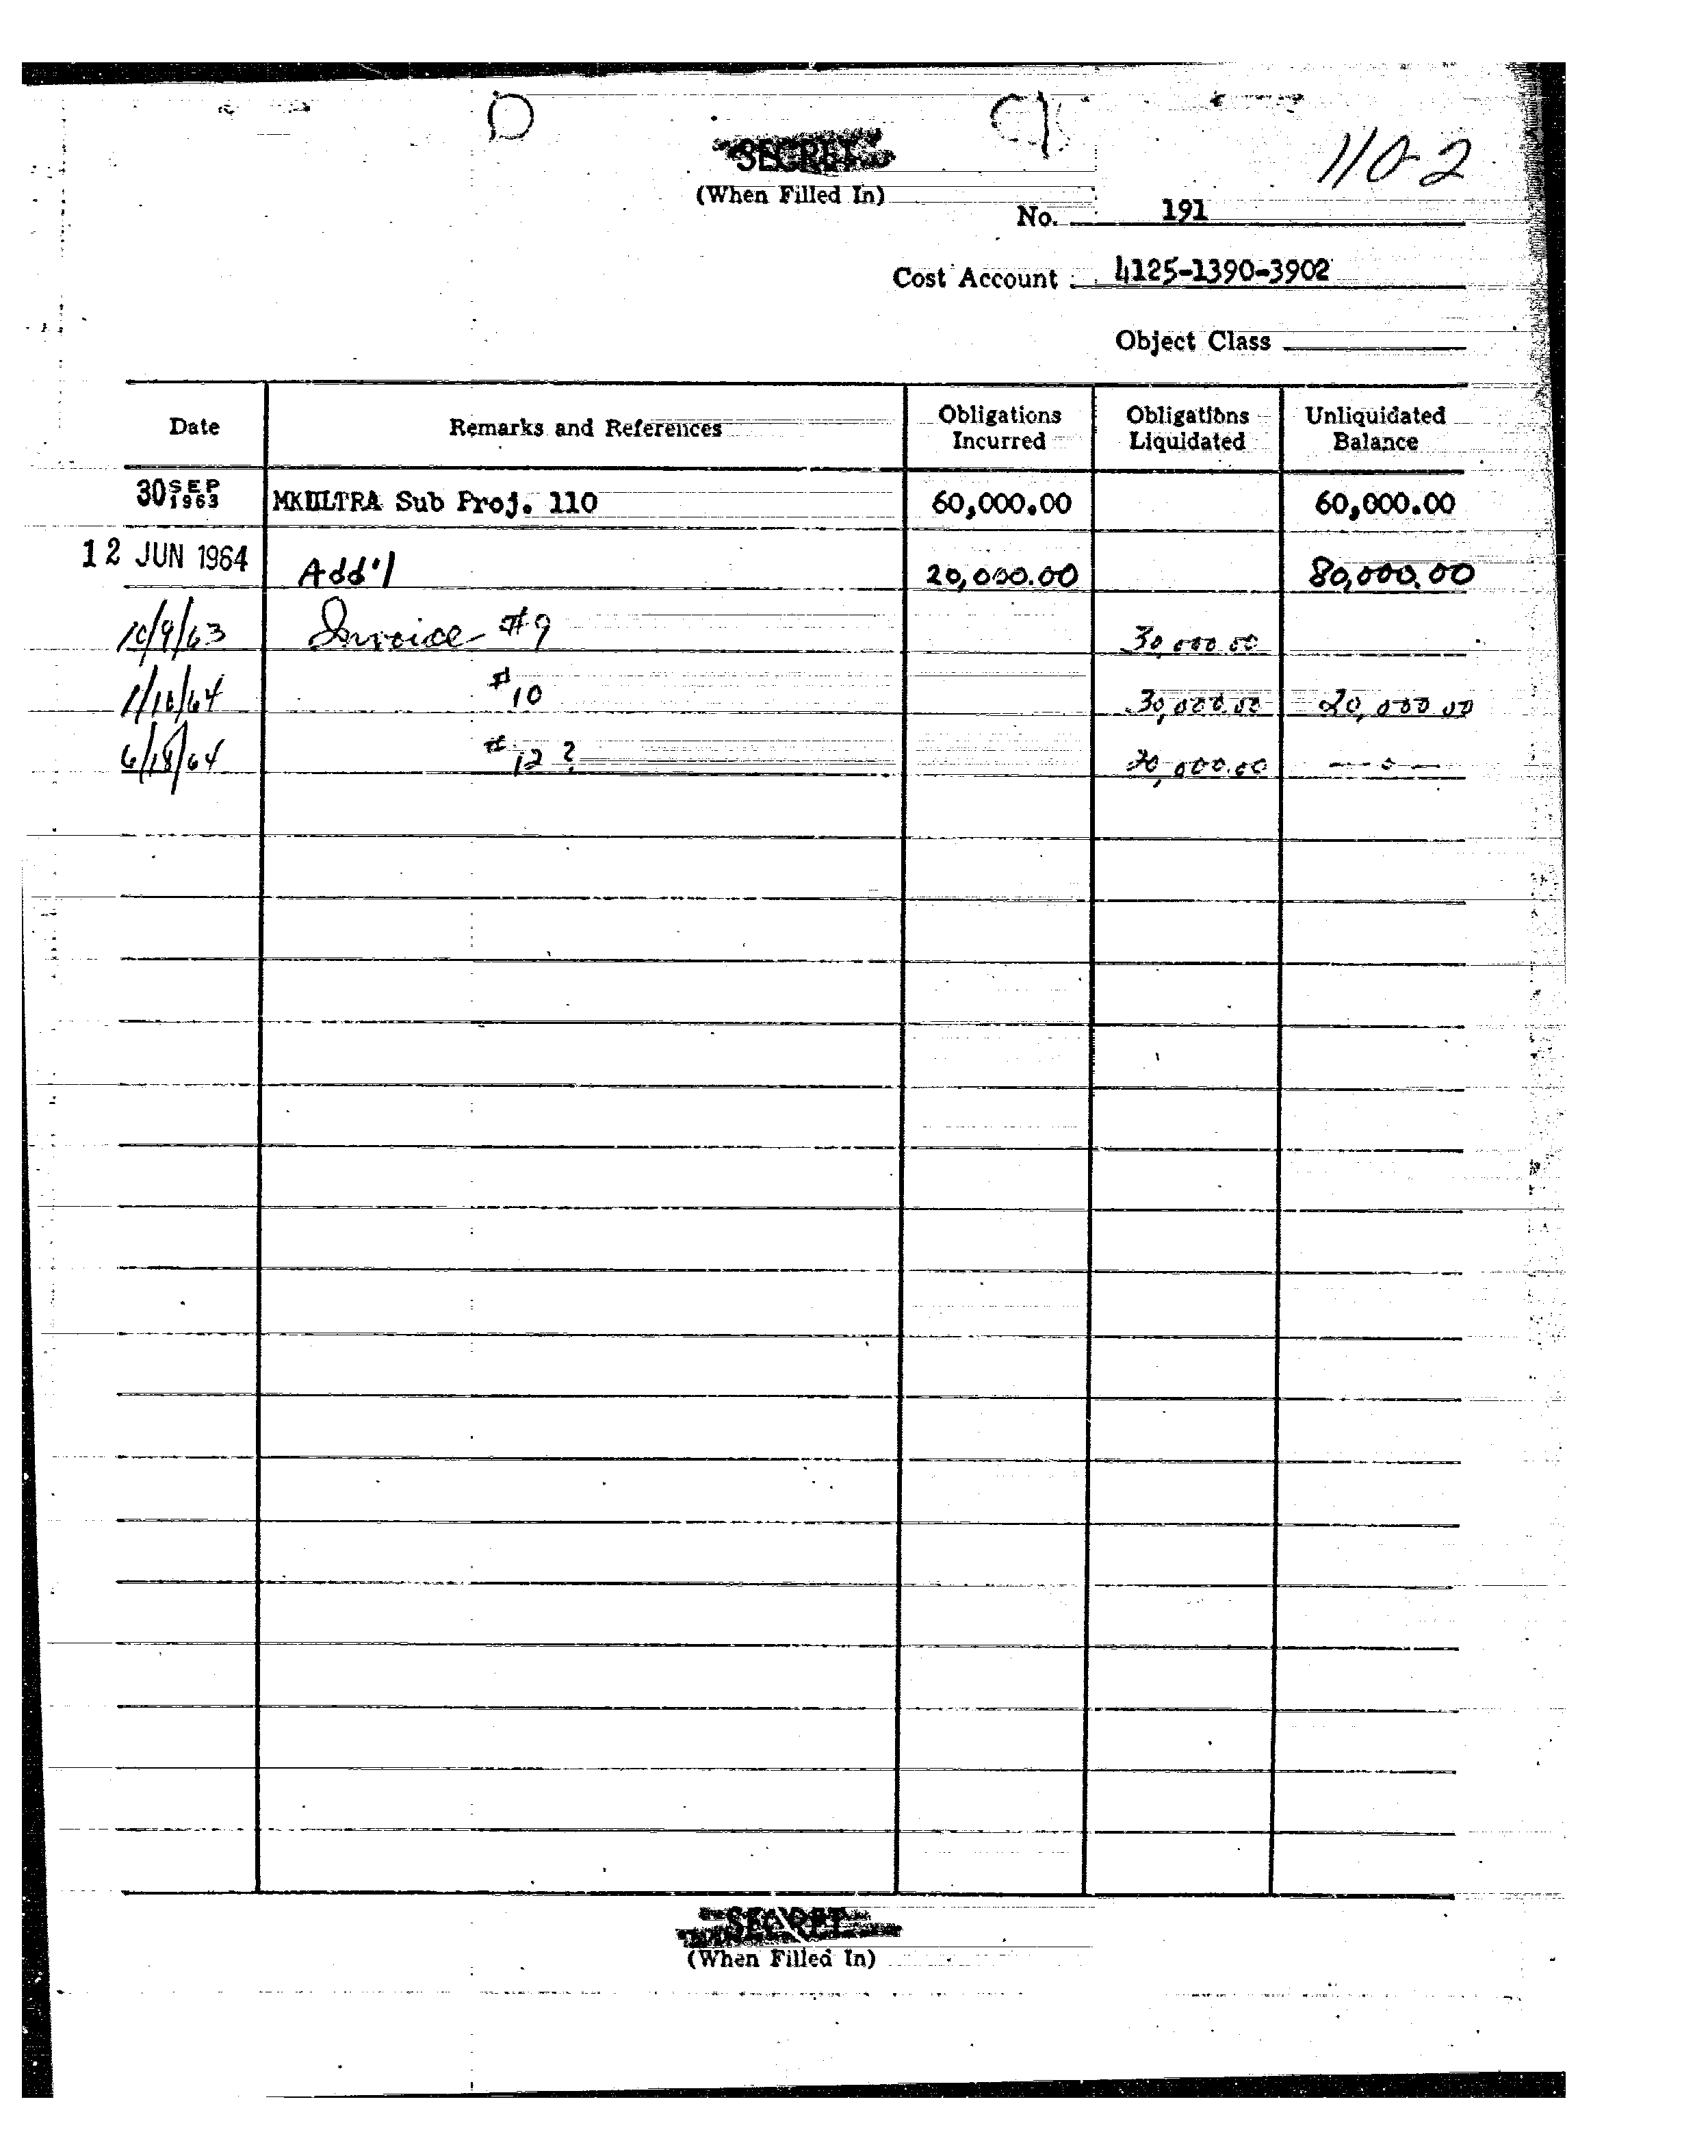 SECRET
110-2
(When Filled In)
No. 191
Cost Account 4125-1390-3902
Object Class
Date Remarks and References Obligations Incurred Obligations Liquidated Unliquidated Balance
30 SEP 1963 MKULTRA Sub Proj. 110 60,000.00 60,000.00
12 JUN 1964 Add'l 20,000.00 80,000.00
10/9/63 Invoice #9 30,000.00
1/10/64 #10 30,000.00 20,000.00
6/18/64 #12 ? 20,000.00 — 0 —
SECRET
(When Filled In)